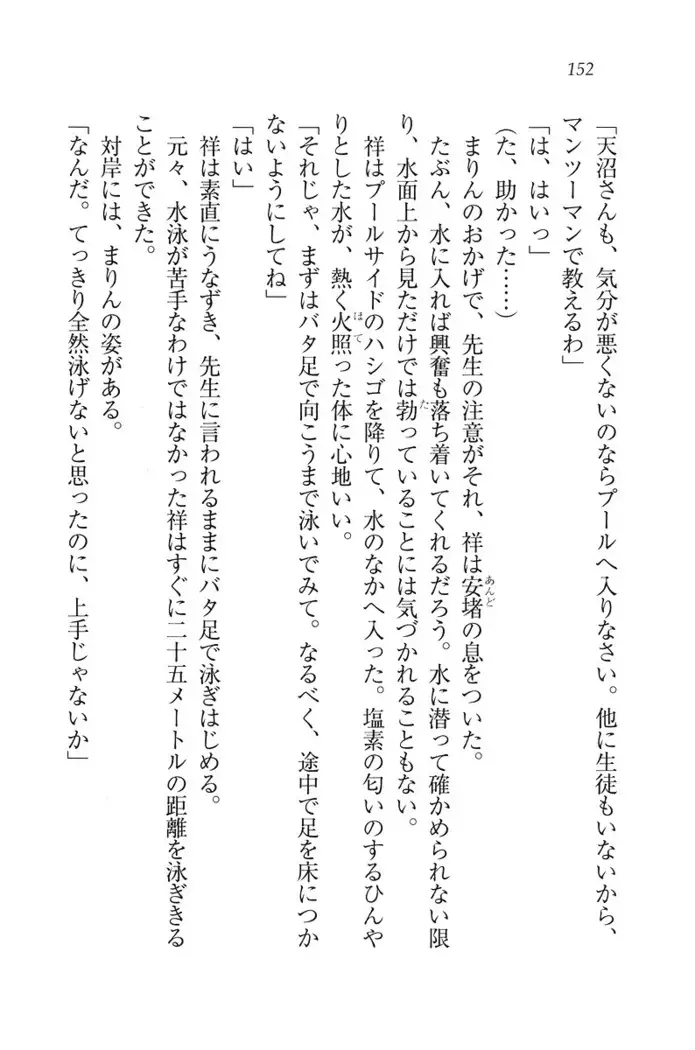 152
「天沼さんも、気分が悪くないのならプールへ入りなさい。他に生徒もいないから、
マンツーマンで教えるわ」
「は、はいっ」
(た、助かった……)
まりんのおかげで、先生の注意がそれ、祥は安堵の息をついた。
たぶん、水に入れば興奮も落ち着いてくれるだろう。水に潜って確かめられない限
り、水面上から見ただけでは勃っていることには気づかれることもない。
祥はプールサイドのハシゴを降りて、水のなかへ入った。塩素の匂いのするひんや
りとした水が、熱く火照った体に心地いい。
「それじゃ、まずはバタ足で向こうまで泳いでみて。なるべく、途中で足を床につか
ないようにしてね」
「はい」
祥は素直にうなずき、先生に言われるままにバタ足で泳ぎはじめる。
元々、水泳が苦手なわけではなかった祥はすぐに二十五メートルの距離を泳ぎきる
ことができた。
対岸には、まりんの姿がある。
「なんだ。てっきり全然泳げないと思ったのに、上手じゃないか」